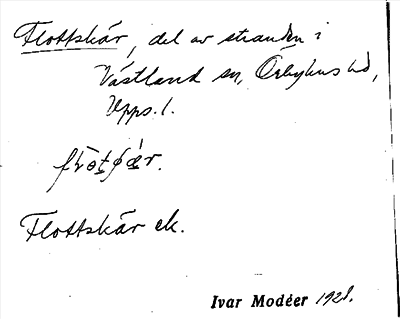 Flottskär, del av stranden i
Västland sn, Örbyhus hd,
Upps. l.
Flottskär ek.
Ivar Modéer 1928.